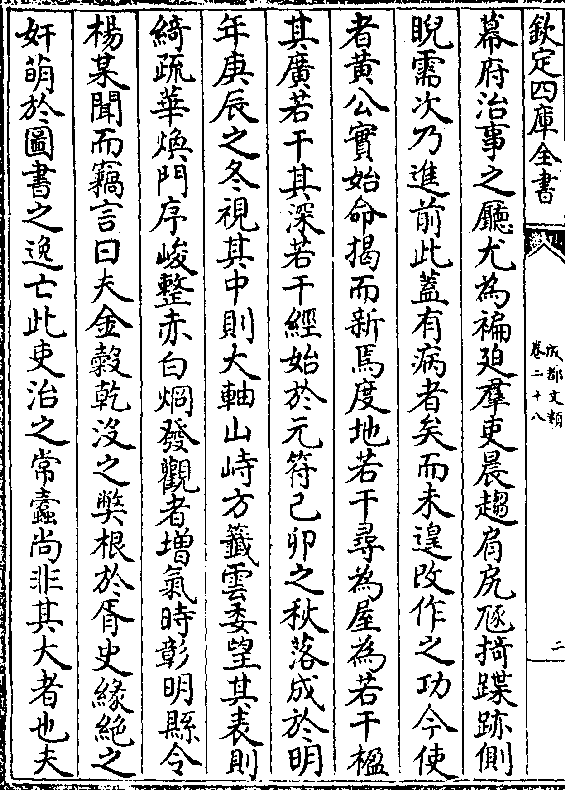 欽定四庫全書
成都文類
卷二十八
二
幕府治事之廳尤為褊廹羣吏晨趨肩尻豗掎蹀跡側
睨需次乃進前此蓋有病者矣而未遑改作之功今使
者黄公實始命揭而新焉度地若干尋為屋為若干楹
其廣若干其深若干經始於元符己卯之秋落成於明
年庚辰之冬視其中則大軸山峙方籤雲委望其表則
綺疏華煥門序峻整赤白烱發觀者增氣時彰明縣令
楊某聞而竊言曰夫金穀乾沒之獘根於胥史緣絶之
奸萌於圖書之逸亡此吏治之常蠧尚非其大者也夫